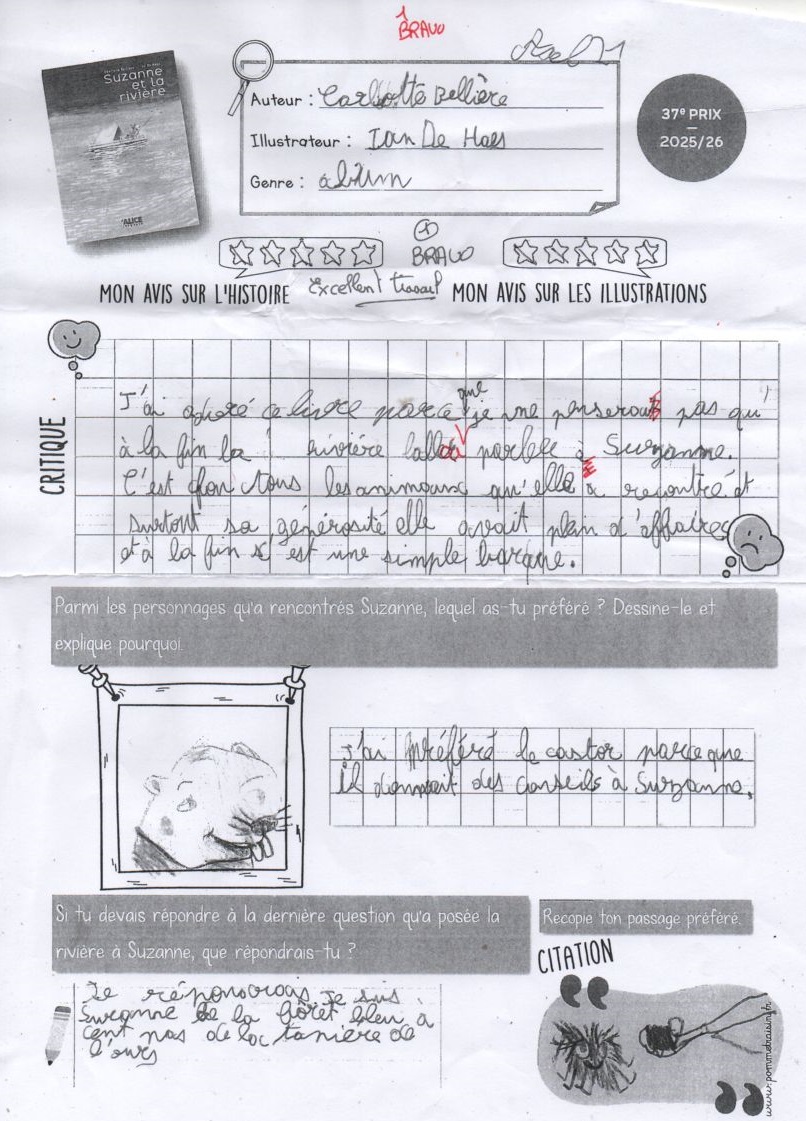 1
BRAVO
Suzanne
et la
rivière
ALICE
Auteur : Carlotte Bellière
Illustrateur : Ian De Haes
Genre : album
37e PRIX
2025/26
+
BRAVO
Excellent travail
MON AVIS SUR L'HISTOIRE
MON AVIS SUR LES ILLUSTRATIONS
CRITIQUE
J'ai adoré ce livre parce que je ne penserait pas qu'
à la fin la rivière parlé à Suzanne.
C'est tous les animaux qu'elle a recontré et
surtout sa générosité elle avait plein d'affaires
et à la fin s'est une simple barque.
Parmi les personnages qu'a rencontrés Suzanne, lequel as-tu préféré ? Dessine-le et
explique pourquoi.
J'ai préféré le castor parce que
il donnait des conseils à Suzanne.
Si tu devais répondre à la dernière question qu'a posée la
rivière à Suzanne, que répondrais-tu ?
Je répondrais je suis
Suzanne de la forêt bleu à
cent pas de la tanière de
l'ours
Recopie ton passage préféré.
CITATION
www.pommedraisin.fr